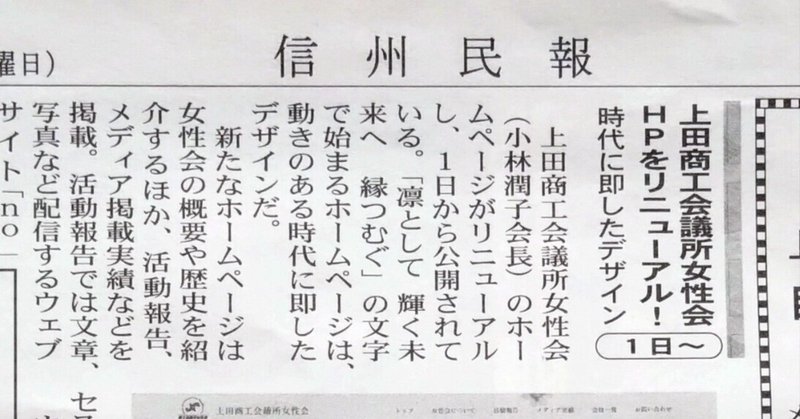 曜日)
信州民報
上田商工会議所女性会
HPをリニューアル!
時代に即したデザイン
1日〜
上田商工会議所女性会
(小林潤子会長)のホー
ムページがリニューアル
し、1日から公開されて
いる。「凛として 輝く未
来へ 縁つむぐ」の文字
で始まるホームページは、
動きのある時代に即した
デザインだ。
新たなホームページは
女性会の概要や歴史を紹
介するほか、活動報告、
メディア掲載実績などを
掲載。活動報告では文章、
写真など配信するウェブ
サイト「no
上田商工会議所女性会
トップ 女性会について 活動報告 メディア実績 会員一覧 お問い合わせ